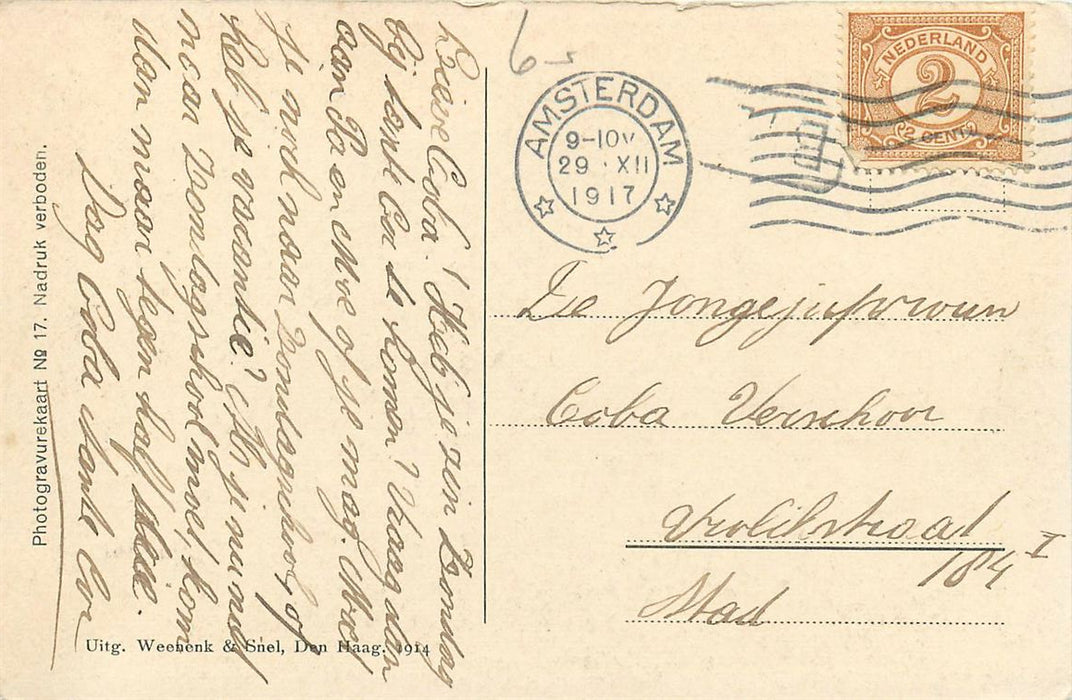 Lieve Coba! Heb je zin Zondag
bij tante Cor te komen? Vraag dan
aan Pa en Moe of je mag. Moet
je nu naar Zondagschool, of
heb je vacantie? Als je nu niet
naar Zondagschool moet, kom
dan maar tegen half drie.
Dag Coba tante Cor
Photogravurekaart No 17. Nadruk verboden.
Uitg. Weenenk & Snel, Den Haag. 1914
6-
AMSTERDAM
9-10V
29 XII
1917
NEDERLAND
2
2 CENT 2
De Jongejufvrouw
Coba Verschoor
Vrolikstraat
184 I
Stad